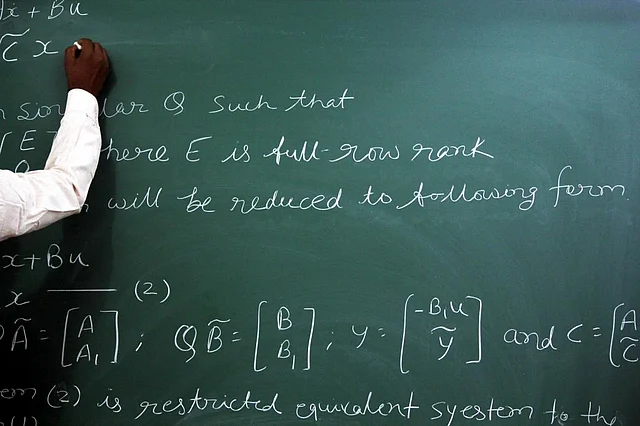 ẋ + Bu
C̃ x
Q such that
E here E is full-row rank
will be reduced to following form.
x + Bu
x ——— (2)
Ã = [A A₁] ; Q B̃ = [B B₁] ; y = [-B₁u ỹ] and C = [A C̃]
(2) is restricted equivalent syestem to the